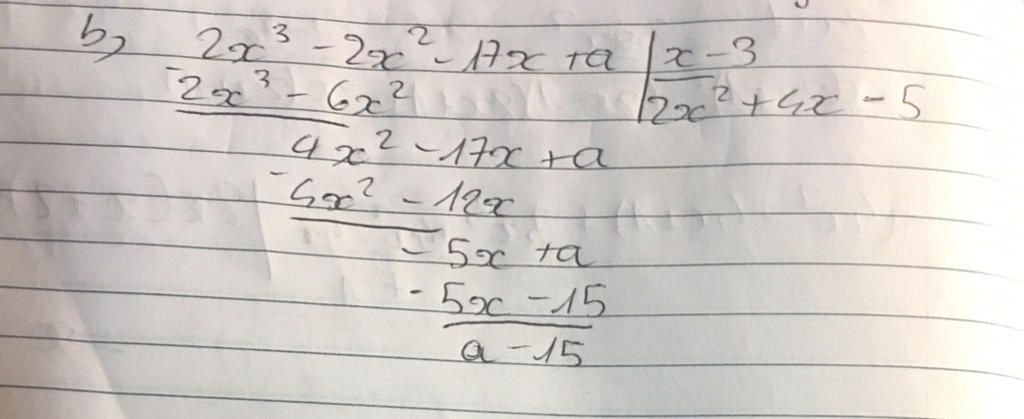 b, 2x³ - 2x² - 17x + a | x - 3
- 2x³ - 6x² | 2x² + 4x - 5
4x² - 17x + a
- 4x² - 12x
- 5x + a
- 5x - 15
a - 15